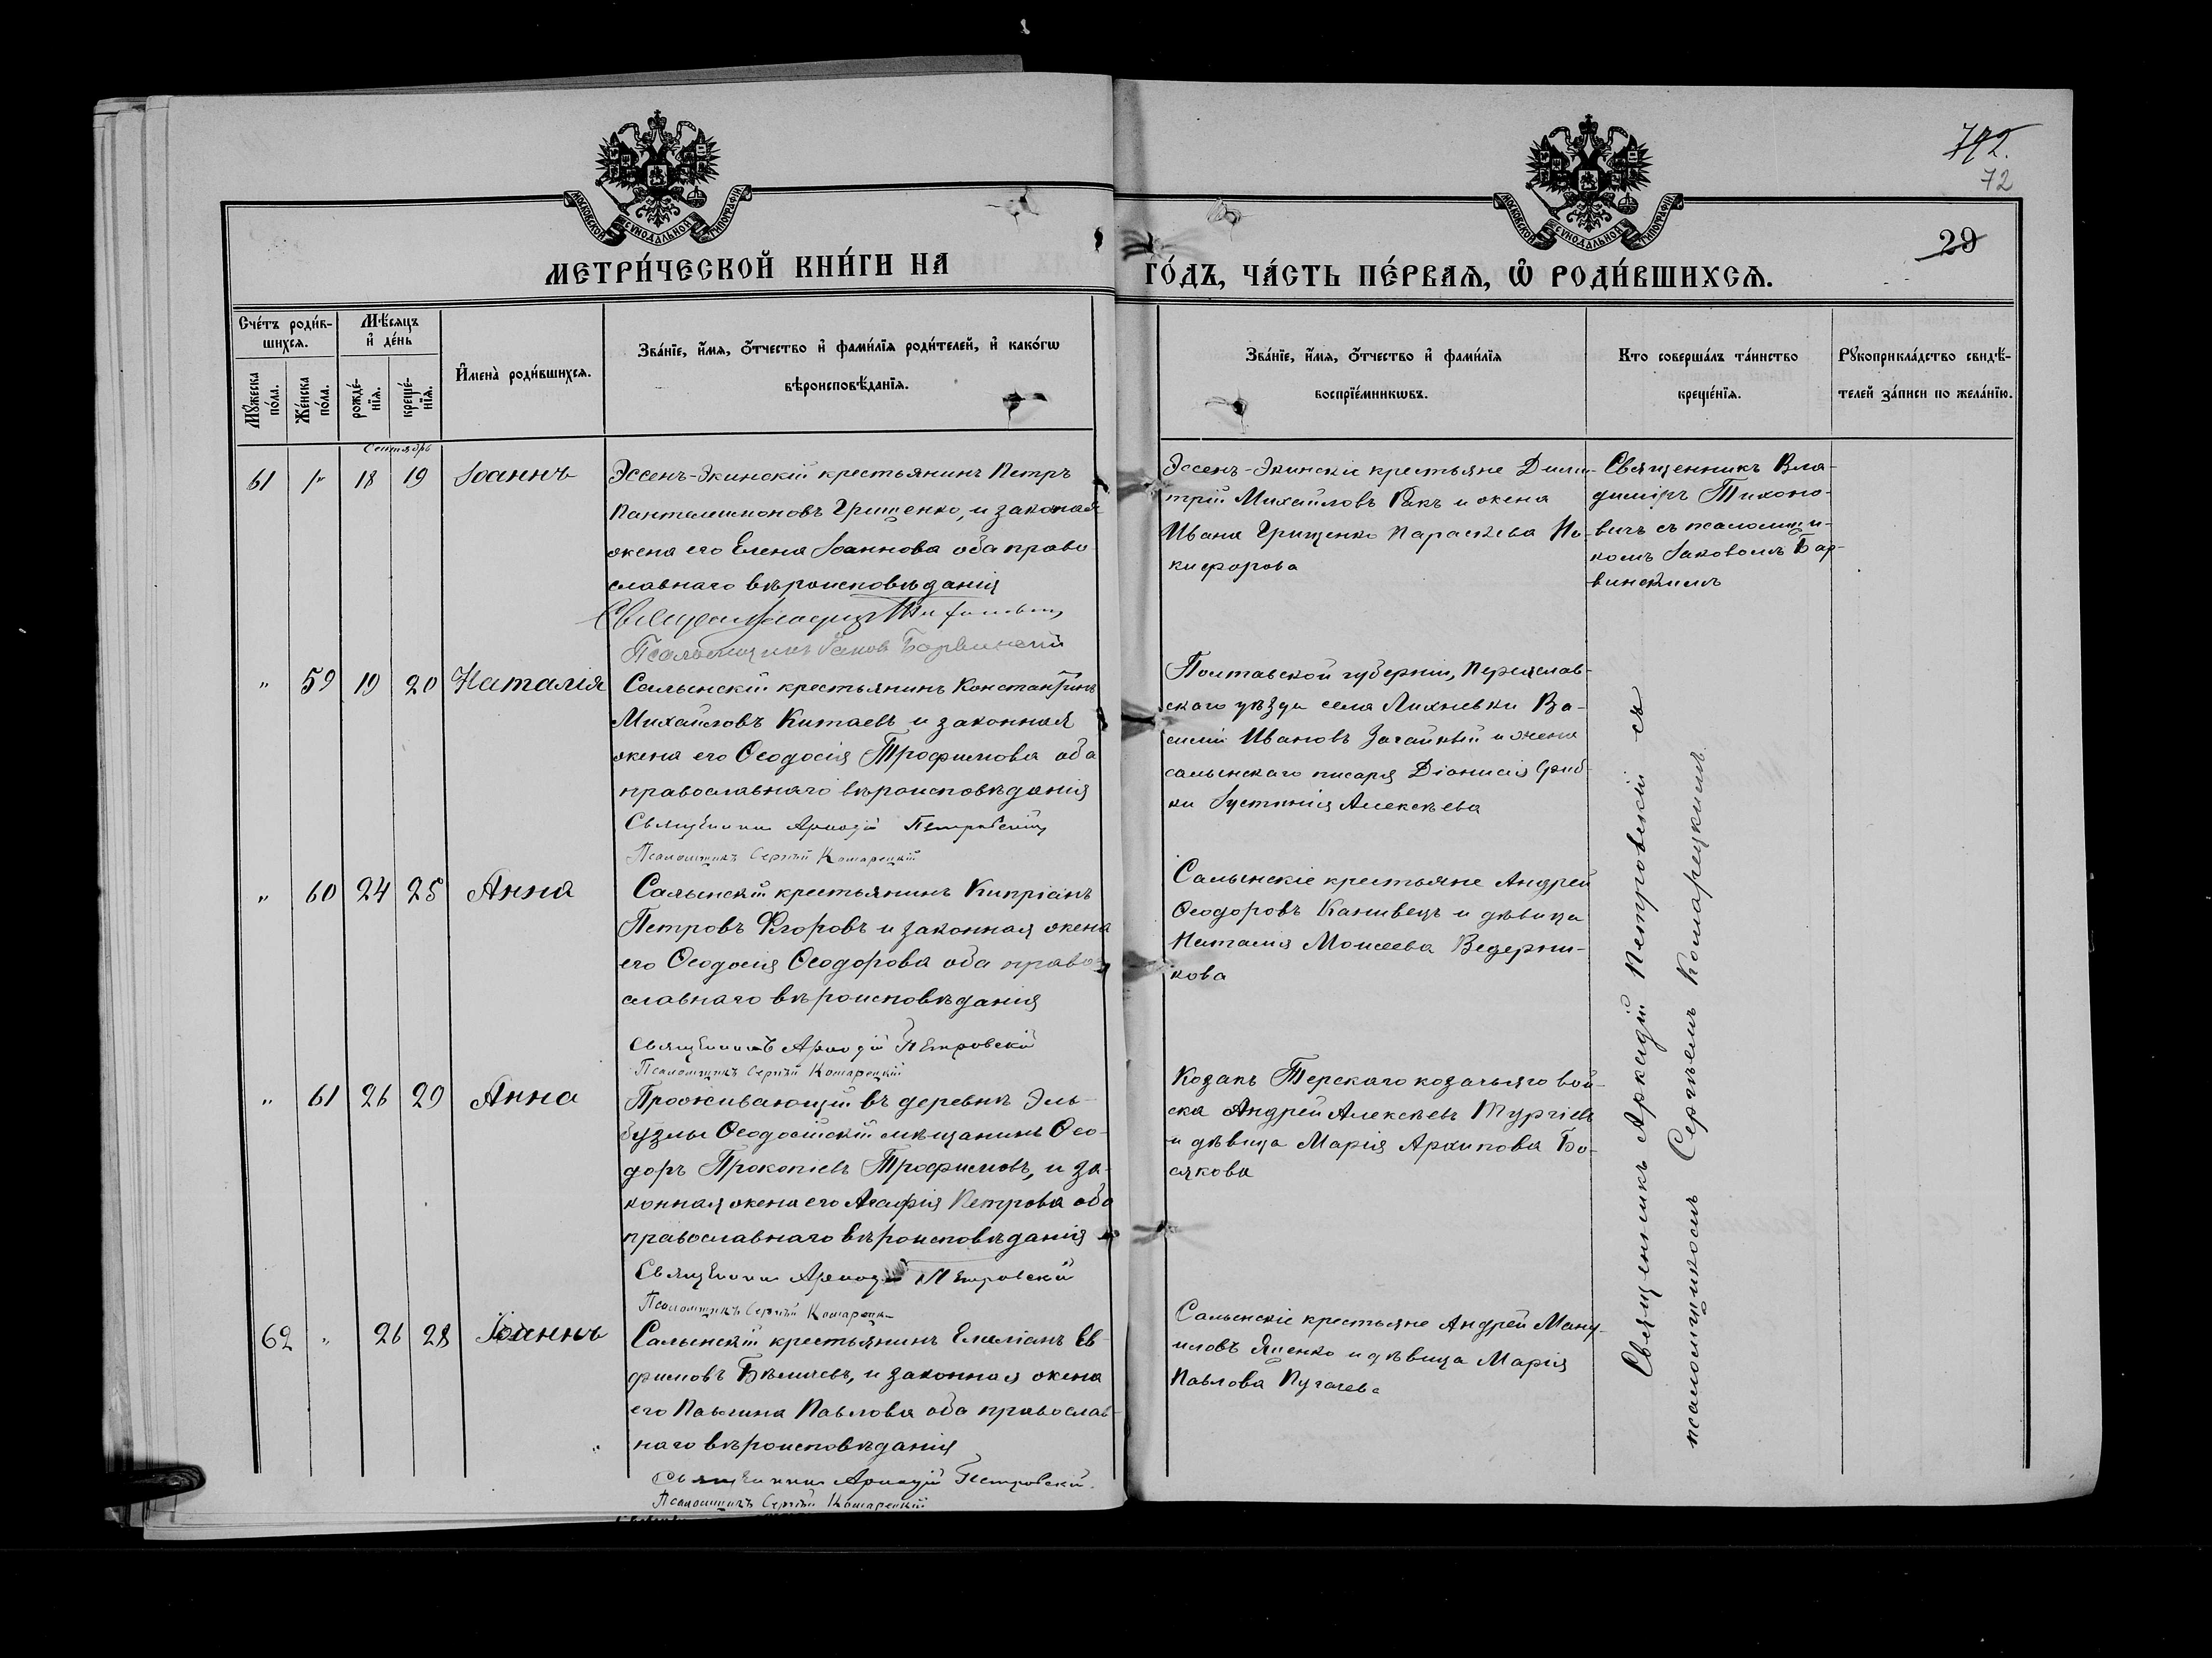 792.
72
29
МОСКОВСКОЙ СѴНОДАЛЬНОЙ ТИПОГРАФІИ
МОСКОВСКОЙ СѴНОДАЛЬНОЙ ТИПОГРАФІИ
МЕТРИ́ЧЕСКОЙ КНИ́ГИ НА ГО́ДЪ, ЧА́СТЬ ПЕ́РВАѦ, Ѡ҆ РОДИ́ВШИХСѦ.
Счéтъ роди́в-
шихсѧ.
Мꙋжеска по́ла.
Же́нска по́ла.
Мѣ́сѧцъ
и҆ де́нь
рожде́-
нїѧ.
креще́-
нїѧ.
И҆менà роди́вшихсѧ.
Зва́нїе, и҆́мѧ, ѻ҆́тчество и҆ фами́лїѧ роди́телей, и҆ како́гѡ
вѣроисповѣ́данїѧ.
Зва́нїе, и҆́мѧ, ѻ҆́тчество и҆ фами́лїѧ
воспрїе́мникѡвъ.
Кто соверша́лъ та́инство
креще́нїѧ.
Рꙋкоприкла́дство свидѣ́-
телей за́писи по жела́нїю.
Сентябрь
61 " 18 19 Іоаннъ
Эссенъ-Экинскій крестьянинъ Петръ
Пантелимоновъ Грищенко, и законая
жена его Елена Іоаннова оба право
славнаго вѣроисповѣданія
Псаломщикъ Іаковъ Барвинскій
Эссенъ-Экинскіе крестьяне Дими-
трій Михайловъ Ракъ и жена
Ивана Грищенко Параскева Ни-
кифорова
Священникъ Вла-
диміръ Тихоно-
вичъ съ псаломщи-
комъ Іаковомъ Бар-
винскимъ
" 59 19 20 Наталія
Салынскій крестьянинъ Константинъ
Михайловъ Китаевъ и законная
жена его Ѳеодосія Трофимова оба
православнаго вѣроисповѣданія
Священникъ Аркадій Петровскій
Псаломщикъ Сергѣй Комарецкій
Полтавской губерніи, Переяслав-
скаго уѣзда села Лихневки Ва-
силій Ивановъ и жена
салынскаго писаря Діонисія
Іустинія Алексѣева
" 60 24 25 Анна
Салынскій крестьянинъ Кипріанъ
Петровъ Егоровъ и законная жена
его Ѳеодосія Ѳеодорова оба право
славнаго вѣроисповѣданія
Священникъ Аркадій Петровскій
Псаломщикъ Сергѣй Комарецкій
Салынскіе крестьяне Андрей
Ѳеодоровъ Канивецъ и дѣвица
Наталія Моисеева Ведерни-
кова
" 61 26 29 Анна
Проживающій въ деревнѣ Эль-
бузлы Ѳеодосійскій мѣщанинъ Ѳео-
доръ Прокопіевъ Трофимовъ, и за-
конная жена его Агафія Петрова оба
православнаго вѣроисповѣданія
Священникъ Аркадій Петровскій
Псаломщикъ Сергѣй Комарецк
Козакъ Терскаго козачьяго вой-
ска Андрей Алексѣевъ Тургіевъ
и дѣвица Марія Архипова Бо-
сякова
62 " 26 28 Іоаннъ
Салынскій крестьянинъ Емеліанъ Ев-
фимовъ Бѣляевъ, и законная жена
его Павлина Павлова оба православ-
наго вѣроисповѣданія
Священникъ Аркадій Петровскій.
Псаломщикъ Сергѣй Комарецкій
Салынскіе крестьяне Андрей Ману-
иловъ Яценко и дѣвица Марія
Павлова Пугачева
Священникъ Аркадій Петровскій съ
псаломщикомъ Сергѣемъ Комарецкимъ